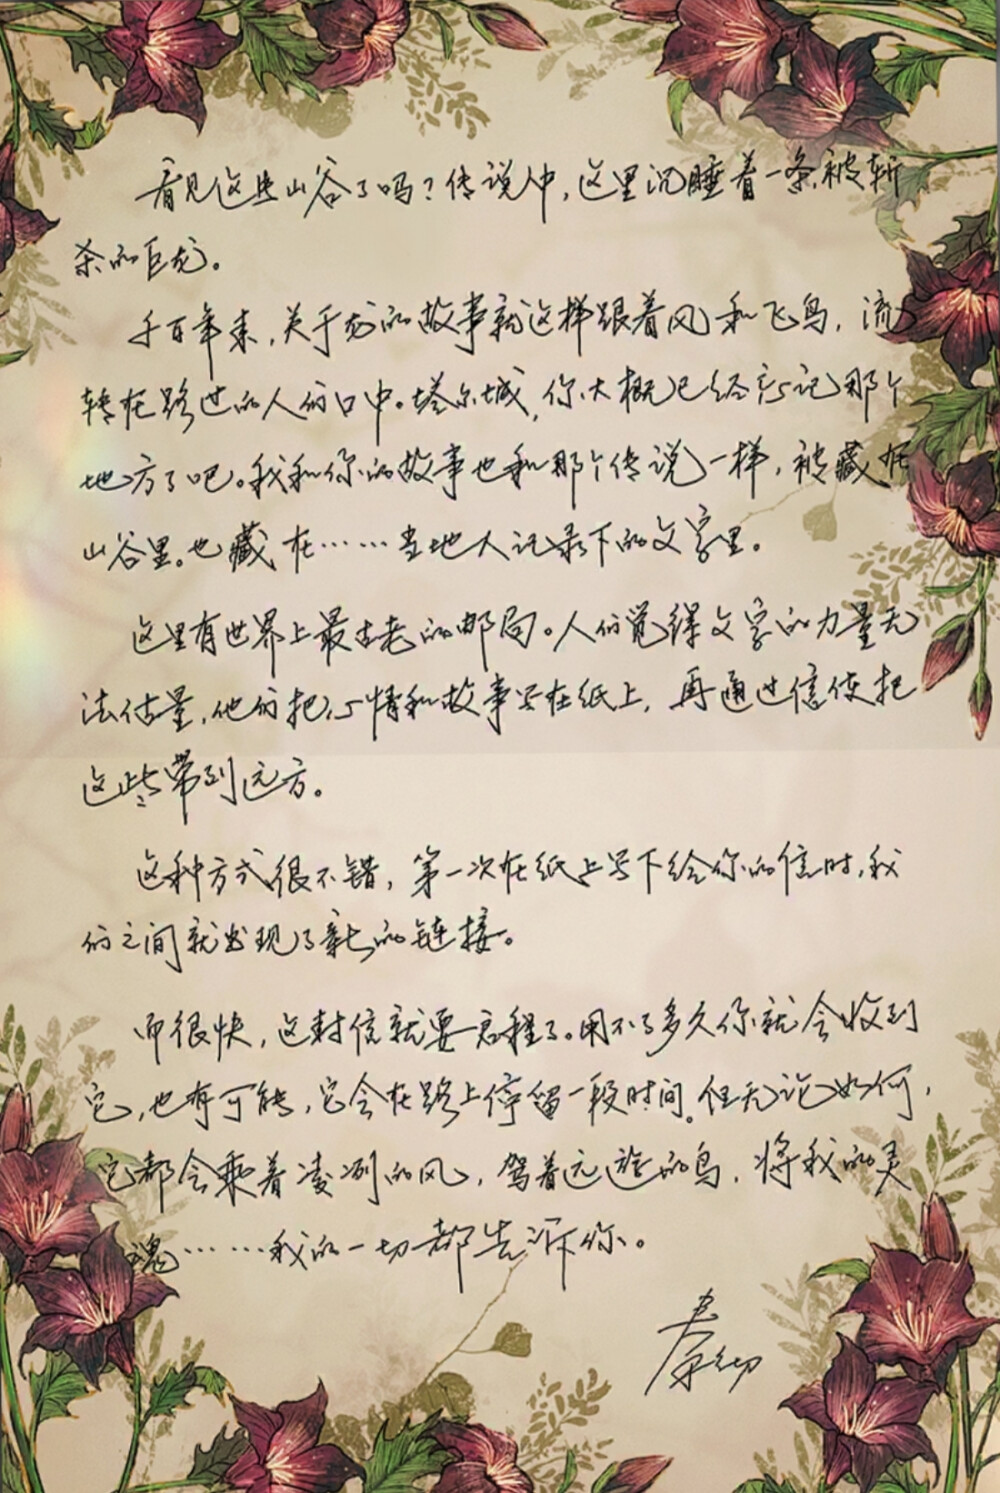 看见这些山谷了吗？传说中，这里沉睡着一条被斩
杀的巨龙。
千百年来，关于龙的故事就这样跟着风和飞鸟，流
转在路过的人们口中。塔尔城，你大概已经忘记那个
地方了吧。我和你的故事也和那个传说一样，被藏在
山谷里。也藏在……当地人记录下的文字里。
这里有世界上最古老的邮局。人们觉得文字的力量无
法估量，他们把心情和故事写在纸上，再通过信使把
这些带到远方。
这种方式很不错，第一次在纸上写下给你的信时，我
们之间就出现了新的链接。
而很快，这封信就要启程了。用不了多久你就会收到
它，也有可能，它会在路上停留一段时间。但无论如何，
它都会乘着凌冽的风，驾着远途的鸟，将我的灵
魂……我的一切都告诉你。
秦彻